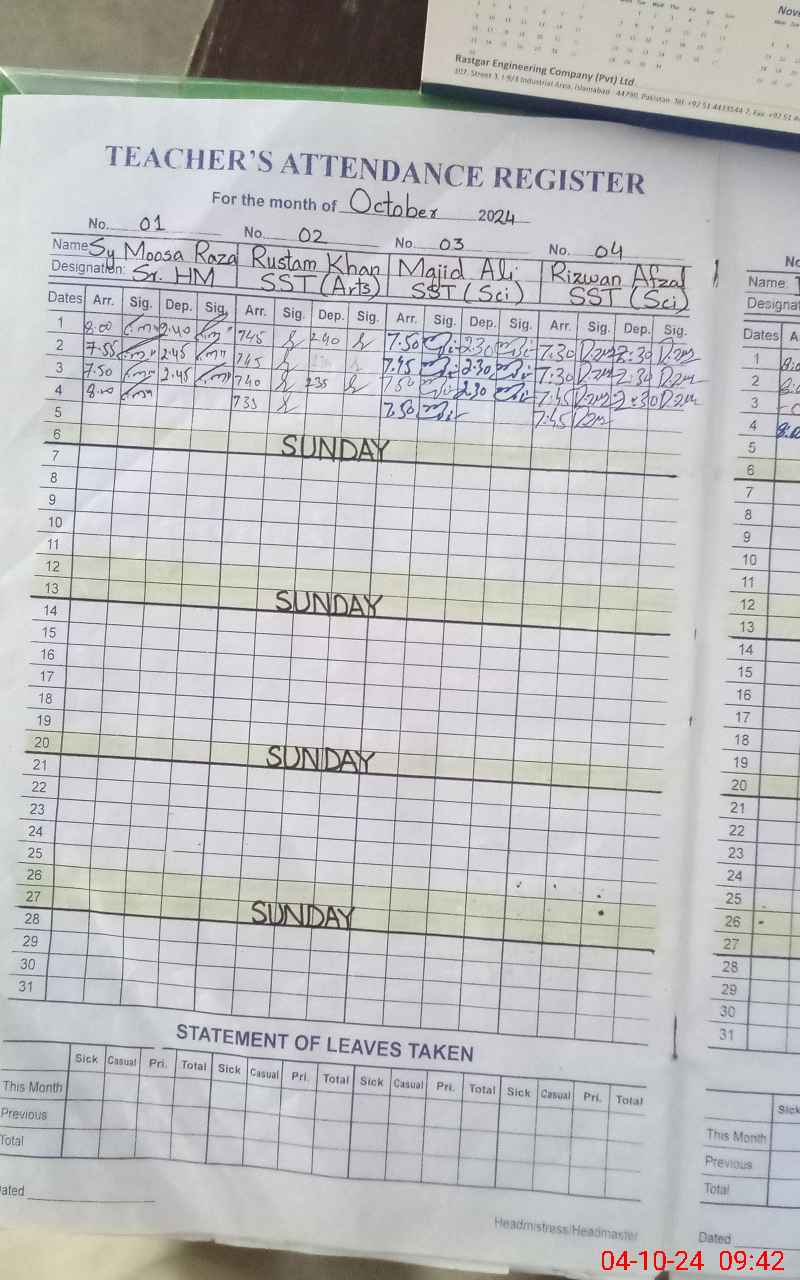 Nove
Rastgar Engineering Company (Pvt) Ltd
TEACHER'S ATTENDANCE REGISTER
For the month of October 2024
No. 01 No. 02 No. 03 No. 04
Name Sy Moosa Raza Rustam Khan Majid Ali Rizwan Afzal
Designation: Sr. HM SST (Arts) SST (Sci) SST (Sci)
Dates Arr. Sig. Dep. Sig. Arr. Sig. Dep. Sig. Arr. Sig. Dep. Sig. Arr. Sig. Dep. Sig.
1 8.00 2.40 745 240 7.50 2.30 7.30 2.30
2 7.55 2.45 745 7.45 2.30 7.30 2:30
3 7.50 2.45 740 235 7.50 2.30 7.45 2:30
4 8.00 735 7.50 7.45
5
6 SUNDAY
7
8
9
10
11
12
13 SUNDAY
14
15
16
17
18
19
20 SUNDAY
21
22
23
24
25
26
27 SUNDAY
28
29
30
31
STATEMENT OF LEAVES TAKEN
Sick Casual Pri. Total Sick Casual Pri. Total Sick Casual Pri. Total Sick Casual Pri. Total
This Month
Previous
Total
ated
Headmistress/Headmaster
No
Name:
Designat
Dates A
1
2
3
4
5
6
7
8
9
10
11
12
13
14
15
16
17
18
19
20
21
22
23
24
25
26
27
28
29
30
31
Sick
This Month
Previous
Total
Dated
04-10-24 09:42